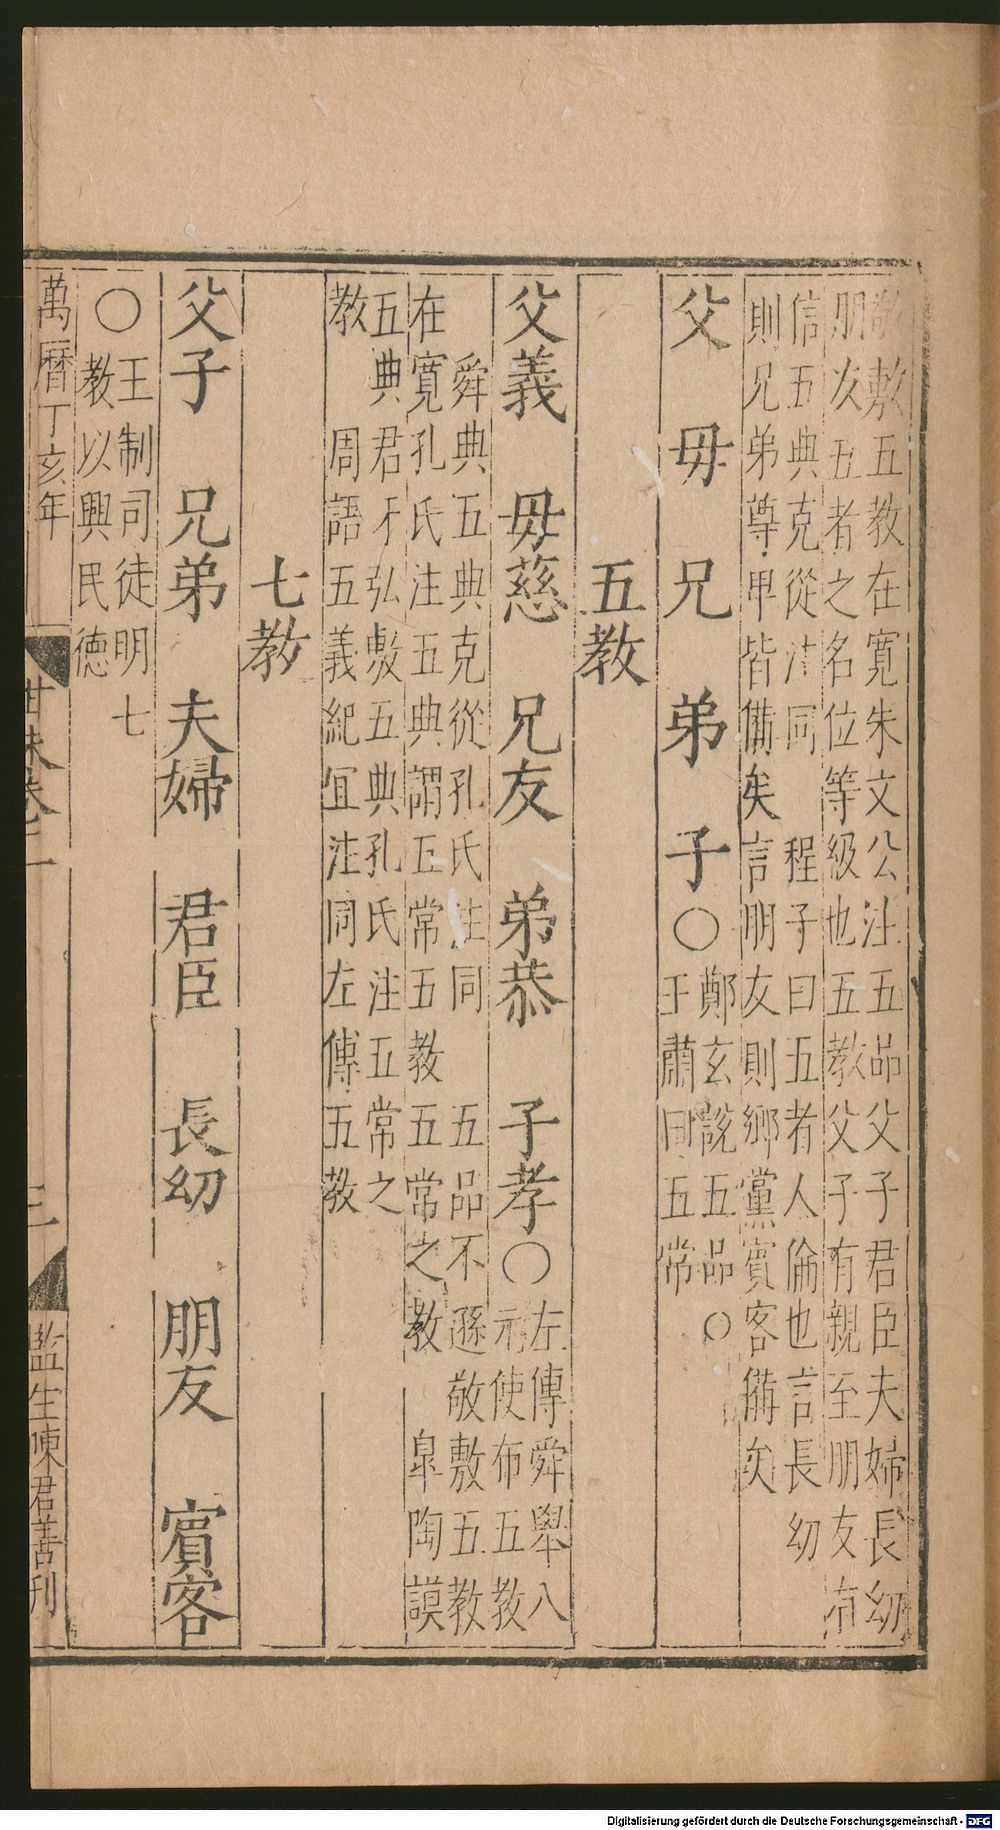 敬敷五教在寛朱文公注五品父子君臣夫婦長幼
朋友五者之名位等級也五教父子有親至朋友有
信五典克從注同 程子曰五者人倫也言長幼
則兄弟尊卑皆備矣言朋友則鄉黨賓客備矣
父 母 兄 弟 子〇鄭玄說五品〇
王肅曰五常
五教
父義 母慈 兄友 弟恭 子孝〇左傳舜舉八
元使布五教
舜典五典克從孔氏注同 五品不遜敬敷五教
在寛孔氏注五典謂五常五教五常之教 臯陶謨
五典君牙弘敷五典孔氏注五常之
教 周語五義紀宜注同左傳五教
七教
父子 兄弟 夫婦 君臣 長幼 朋友 賓客
〇王制司徒明七
教以興民德
萬曆丁亥年
卷二
三
監生陳君善刊
Digitalisierung gefördert durch die Deutsche Forschungsgemeinschaft - DFG